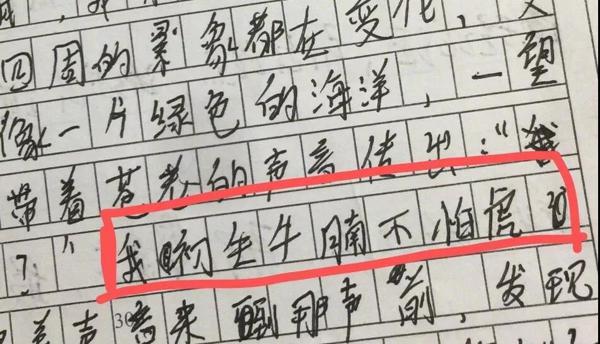 四周的景象都在变化,
像一片绿色的海洋,一望
带着苍老的声音传出:“
?”我初生牛腩不怕虎的
声 300 来到那声前,发现